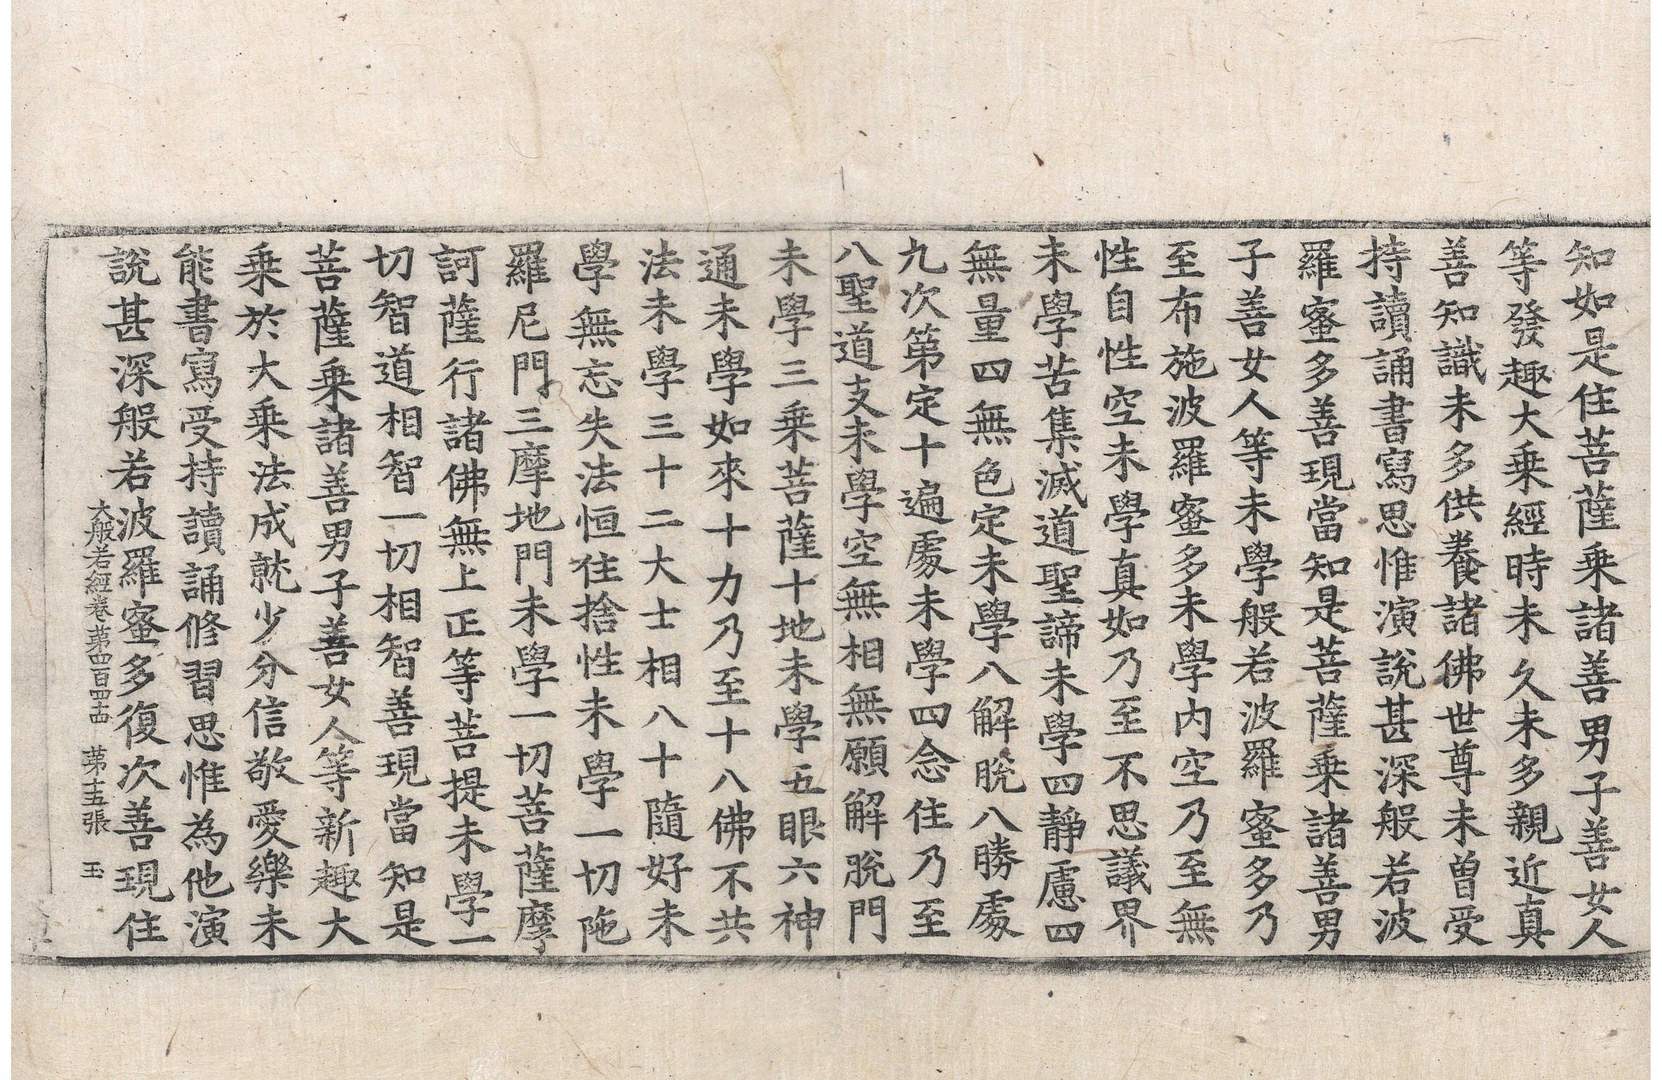 知如是住菩薩乗諸善男子善女人
等發趣大乗經時未久未多親近真
善知識未多供養諸佛世尊未曽受
持讀誦書寫思惟演說甚深般若波
羅蜜多善現當知是菩薩乗諸善男
子善女人等未學般若波羅蜜多乃
至布施波羅蜜多未學内空乃至無
性自性空未學真如乃至不思議界
未學苦集滅道聖諦未學四靜慮四
無量四無色定未學八解脫八勝處
九次第定十遍處未學四念住乃至
八聖道支未學空無相無願解脫門
未學三乗菩薩十地未學五眼六神
通未學如來十力乃至十八佛不共
法未學三十二大士相八十隨好未
學無忘失法恒住捨性未學一切陁
羅尼門三摩地門未學一切菩薩摩
訶薩行諸佛無上正等菩提未學一
切智道相智一切相智善現當知是
菩薩乗諸善男子善女人等新趣大
乗於大乗法成就少分信敬愛樂未
能書寫受持讀誦修習思惟為他演
說甚深般若波羅蜜多復次善現住
大般若經卷第四百四十四　第十五張　玉